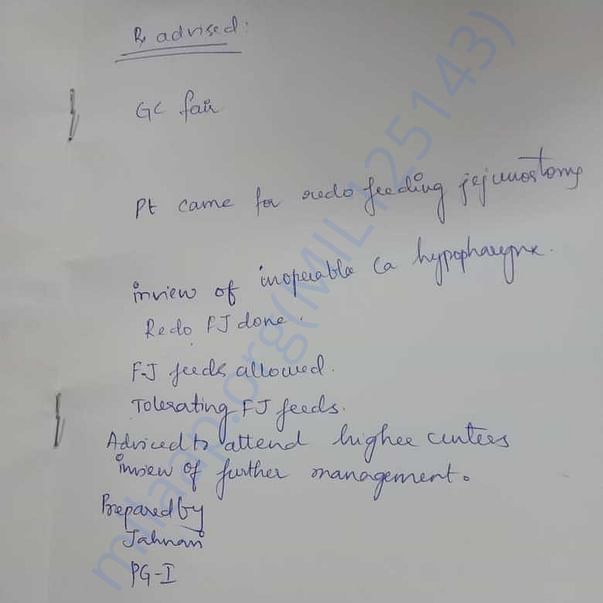 Rx advised:
GC fair
Pt came for redo feeding jejunostomy
inview of inoperable Ca hypopharynx.
Redo FJ done.
FJ feeds allowed.
Tolerating FJ feeds.
Adviced to attend higher centers
inview of further management.
Prepared by
Jahnavi
PG-I
milaap.org(MIL125143)